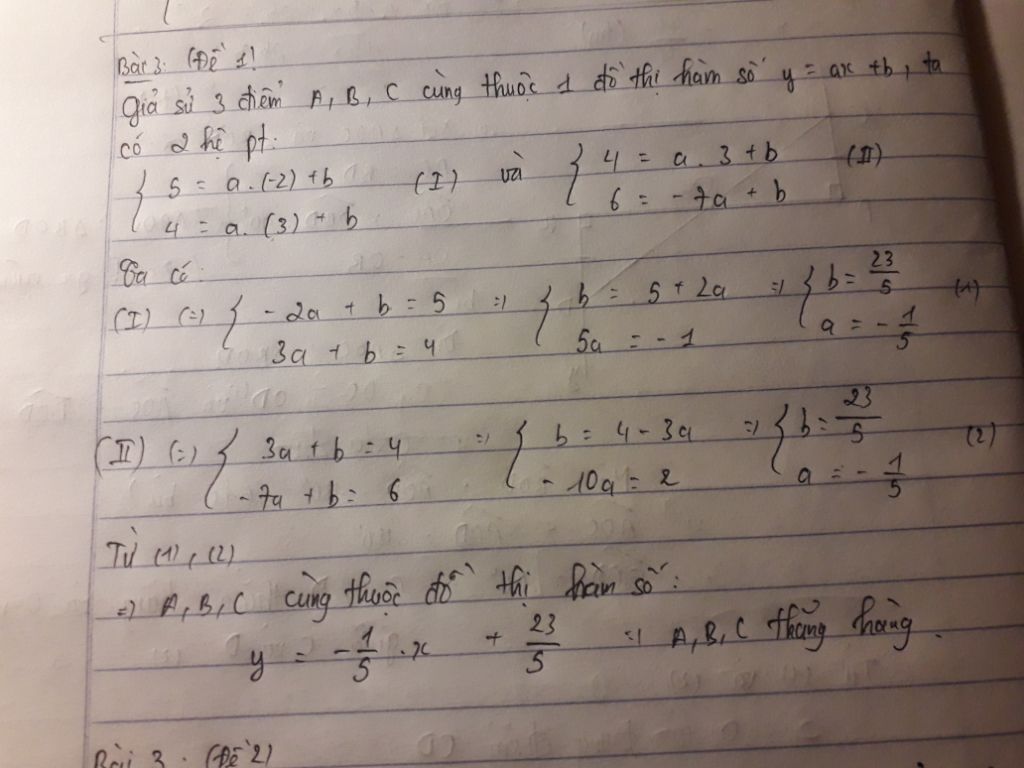 Bài 3: (Đề 1)
Giả sử 3 điểm A, B, C cùng thuộc 1 đồ thị hàm số y = ax + b, ta
có 2 hệ pt:
{ 5 = a.(-2) + b (I) và { 4 = a.3 + b (II)
4 = a.(3) + b 6 = -7a + b
Ta có:
(I) (=) { -2a + b = 5 =) { b = 5 + 2a =) { b = 23/5 (1)
3a + b = 4 5a = -1 a = -1/5
(II) (=) { 3a + b = 4 =) { b = 4 - 3a =) { b = 23/5 (2)
-7a + b = 6 -10a = 2 a = -1/5
Từ (1), (2)
=) A, B, C cùng thuộc đồ thị hàm số:
y = -1/5 .x + 23/5 =) A, B, C thẳng hàng.
Bài 3: (Đề 2)